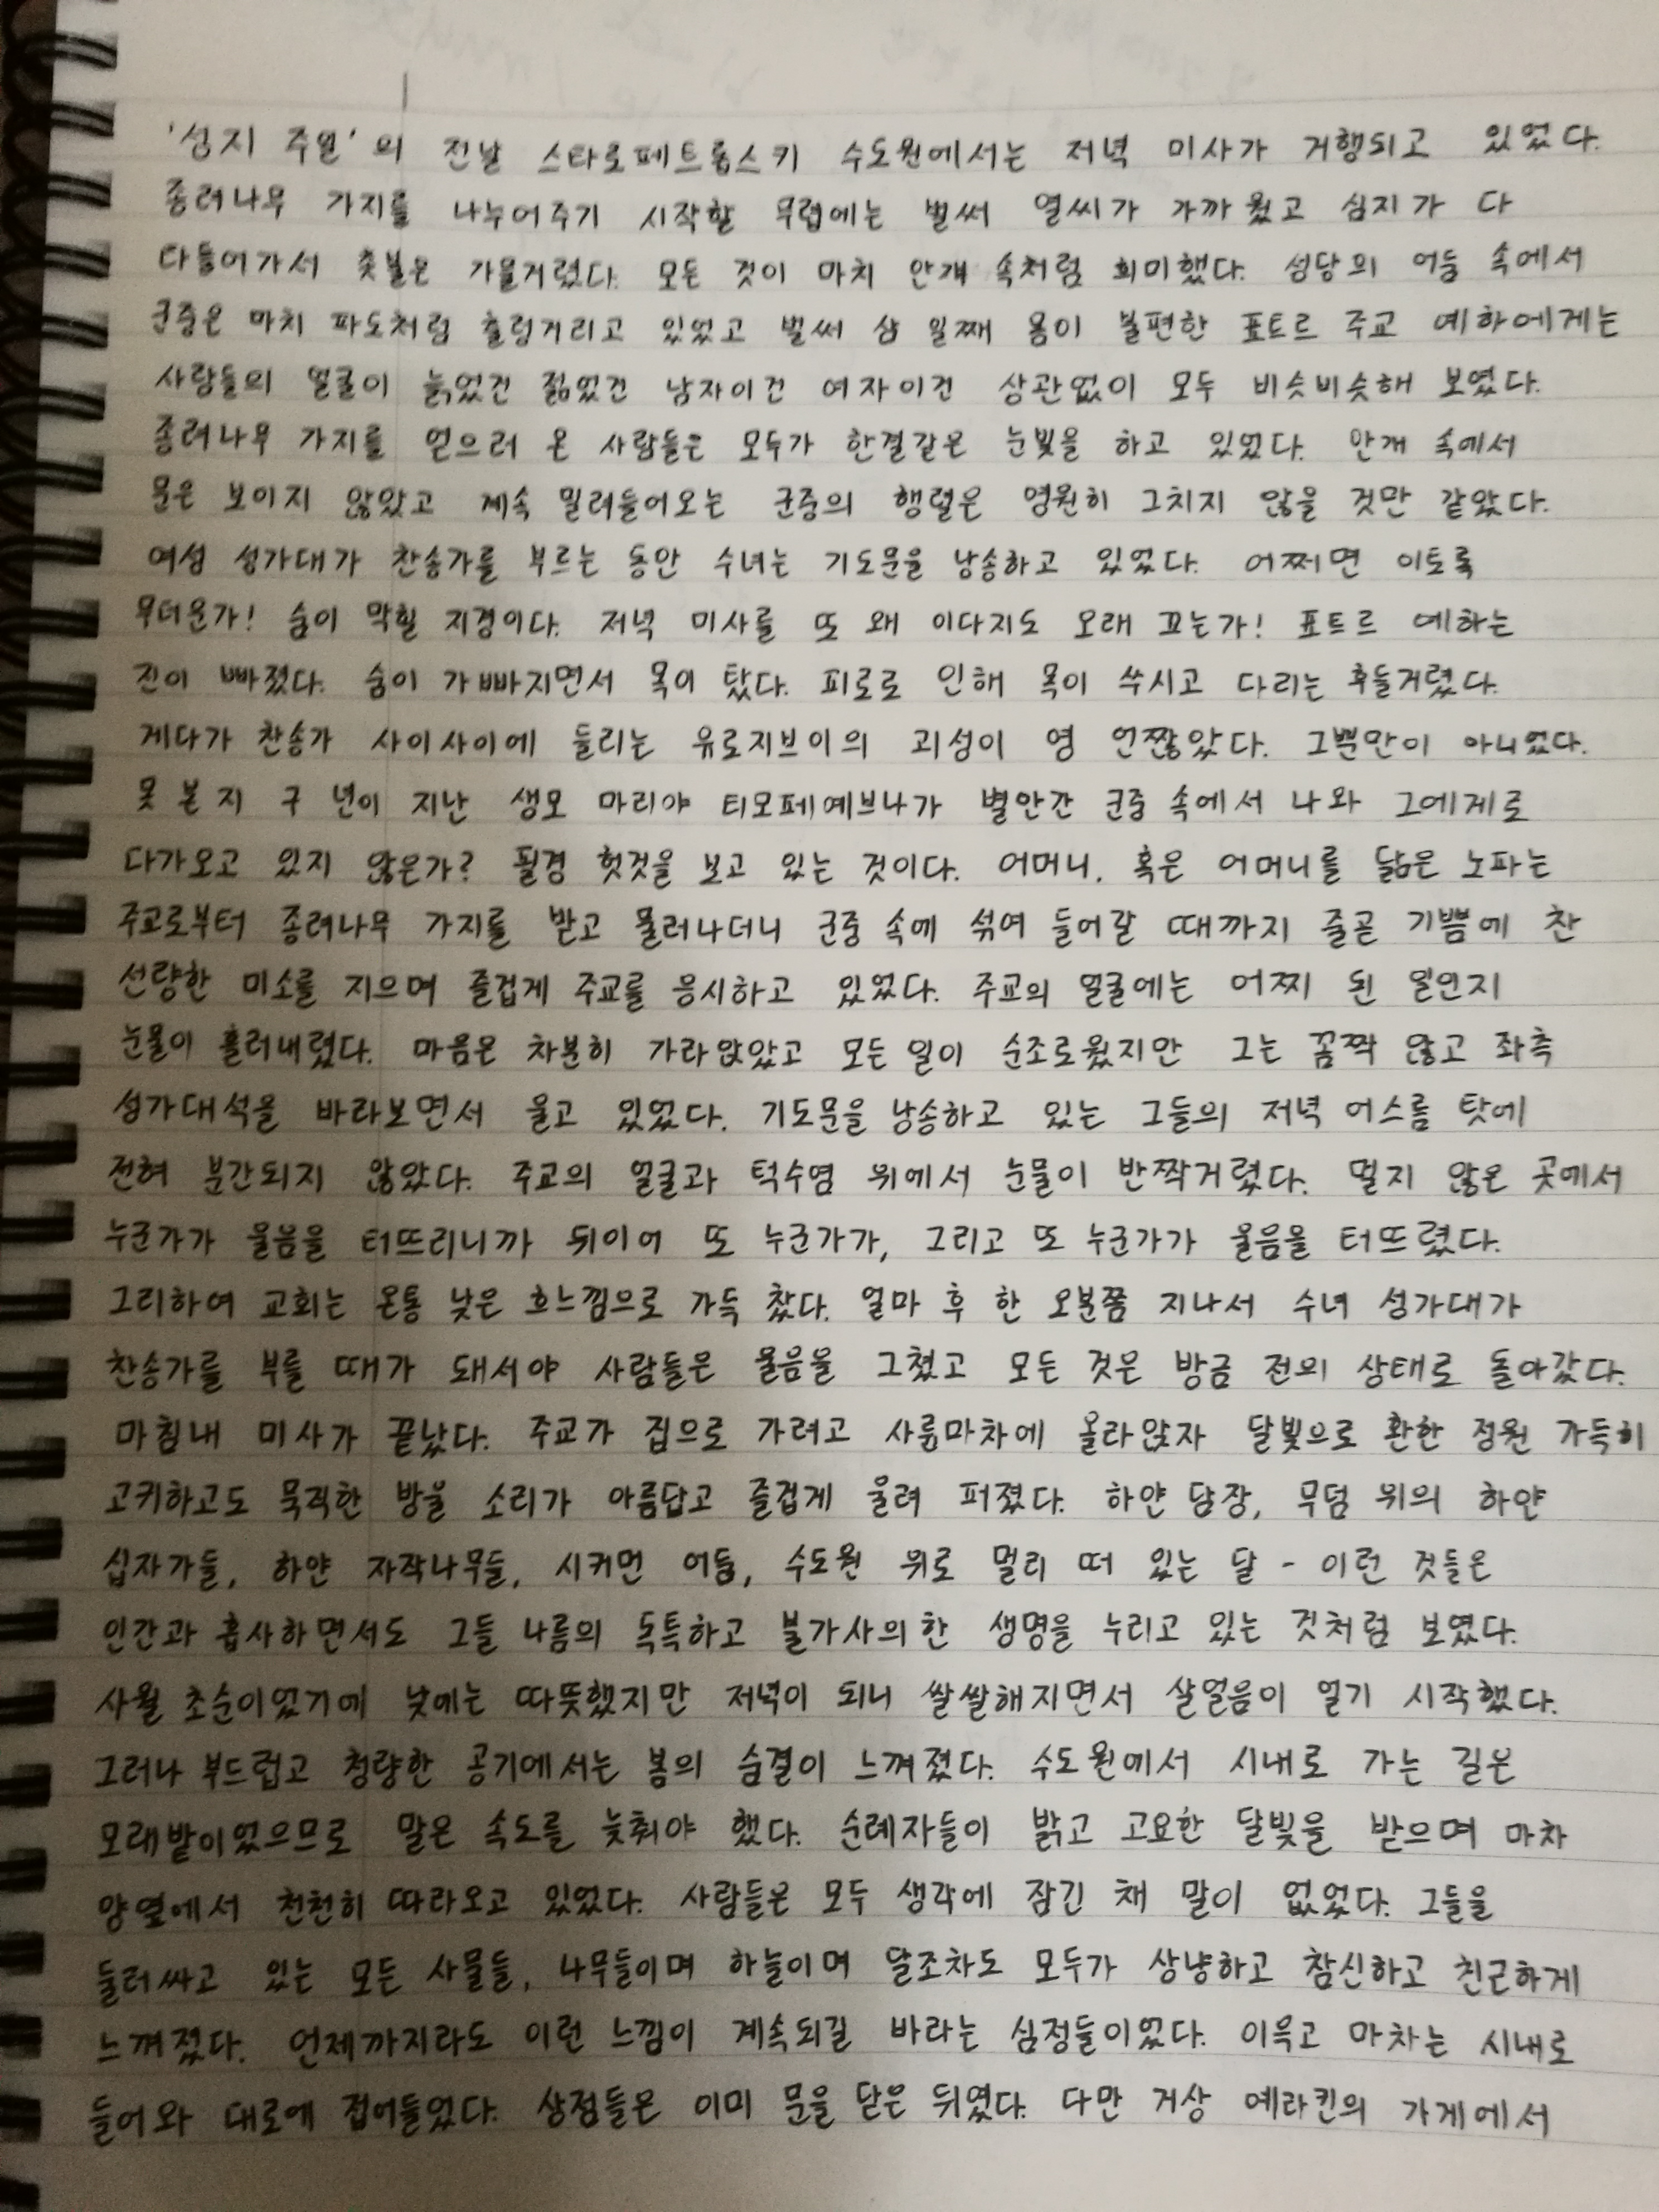 '성지 주일'의 전날 스타로페트롭스키 수도원에서는 저녁 미사가 거행되고 있었다.
종려나무 가지를 나누어주기 시작할 무렵에는 벌써 열씨가 가까웠고 심지가 다
타들어가서 촛불은 가물거렸다. 모든 것이 마치 안개 속처럼 희미했다. 성당의 어둠 속에서
군중은 마치 파도처럼 출렁거리고 있었고 벌써 삼 일째 몸이 불편한 표트르 주교 예하에게는
사람들의 얼굴이 늙었건 젊었건 남자이건 여자이건 상관없이 모두 비슷비슷해 보였다.
종려나무 가지를 얻으러 온 사람들은 모두가 한결같은 눈빛을 하고 있었다. 안개 속에서
문은 보이지 않았고 계속 밀려들어오는 군중의 행렬은 영원히 그치지 않을 것만 같았다.
여성 성가대가 찬송가를 부르는 동안 수녀는 기도문을 낭송하고 있었다. 어쩌면 이토록
무더운가! 숨이 막힐 지경이다. 저녁 미사를 또 왜 이다지도 오래 끄는가! 표트르 예하는
진이 빠졌다. 숨이 가빠지면서 목이 탔다. 피로로 인해 목이 쑤시고 다리는 후들거렸다.
게다가 찬송가 사이사이에 들리는 유로지브이의 괴성이 영 언짢았다. 그뿐만이 아니었다.
못 본 지 구 년이 지난 생모 마리야 티모페예브나가 별안간 군중 속에서 나와 그에게로
다가오고 있지 않은가? 필경 헛것을 보고 있는 것이다. 어머니, 혹은 어머니를 닮은 노파는
주교로부터 종려나무 가지를 받고 물러나더니 군중 속에 섞여 들어갈 때까지 줄곧 기쁨에 찬
선량한 미소를 지으며 즐겁게 주교를 응시하고 있었다. 주교의 얼굴에는 어찌 된 일인지
눈물이 흘러내렸다. 마음은 차분히 가라앉았고 모든 일이 순조로웠지만 그는 꼼짝 않고 좌측
성가대석을 바라보면서 울고 있었다. 기도문을 낭송하고 있는 그들의 저녁 어스름 탓에
전혀 분간되지 않았다. 주교의 얼굴과 턱수염 위에서 눈물이 반짝거렸다. 멀지 않은 곳에서
누군가가 울음을 터뜨리니까 뒤이어 또 누군가가, 그리고 또 누군가가 울음을 터뜨렸다.
그리하여 교회는 온통 낮은 흐느낌으로 가득 찼다. 얼마 후 한 오분쯤 지나서 수녀 성가대가
찬송가를 부를 때가 돼서야 사람들은 울음을 그쳤고 모든 것은 방금 전의 상태로 돌아갔다.
마침내 미사가 끝났다. 주교가 집으로 가려고 사륜마차에 올라앉자 달빛으로 환한 정원 가득히
고귀하고도 묵직한 방울 소리가 아름답고 즐겁게 울려 퍼졌다. 하얀 담장, 무덤 위의 하얀
십자가들, 하얀 자작나무들, 시커먼 어둠, 수도원 위로 멀리 떠 있는 달 - 이런 것들은
인간과 흡사하면서도 그들 나름의 독특하고 불가사의한 생명을 누리고 있는 것처럼 보였다.
사월 초순이었기에 낮에는 따뜻했지만 저녁이 되니 쌀쌀해지면서 살얼음이 얼기 시작했다.
그러나 부드럽고 청량한 공기에서는 봄의 숨결이 느껴졌다. 수도원에서 시내로 가는 길은
모래밭이었으므로 말은 속도를 늦춰야 했다. 순례자들이 밝고 고요한 달빛을 받으며 마차
양옆에서 천천히 따라오고 있었다. 사람들은 모두 생각에 잠긴 채 말이 없었다. 그들을
둘러싸고 있는 모든 사물들, 나무들이며 하늘이며 달조차도 모두가 상냥하고 참신하고 친근하게
느껴졌다. 언제까지라도 이런 느낌이 계속되길 바라는 심정들이었다. 이윽고 마차는 시내로
들어와 대로에 접어들었다. 상점들은 이미 문을 닫은 뒤였다. 다만 거상 예라킨의 가게에서